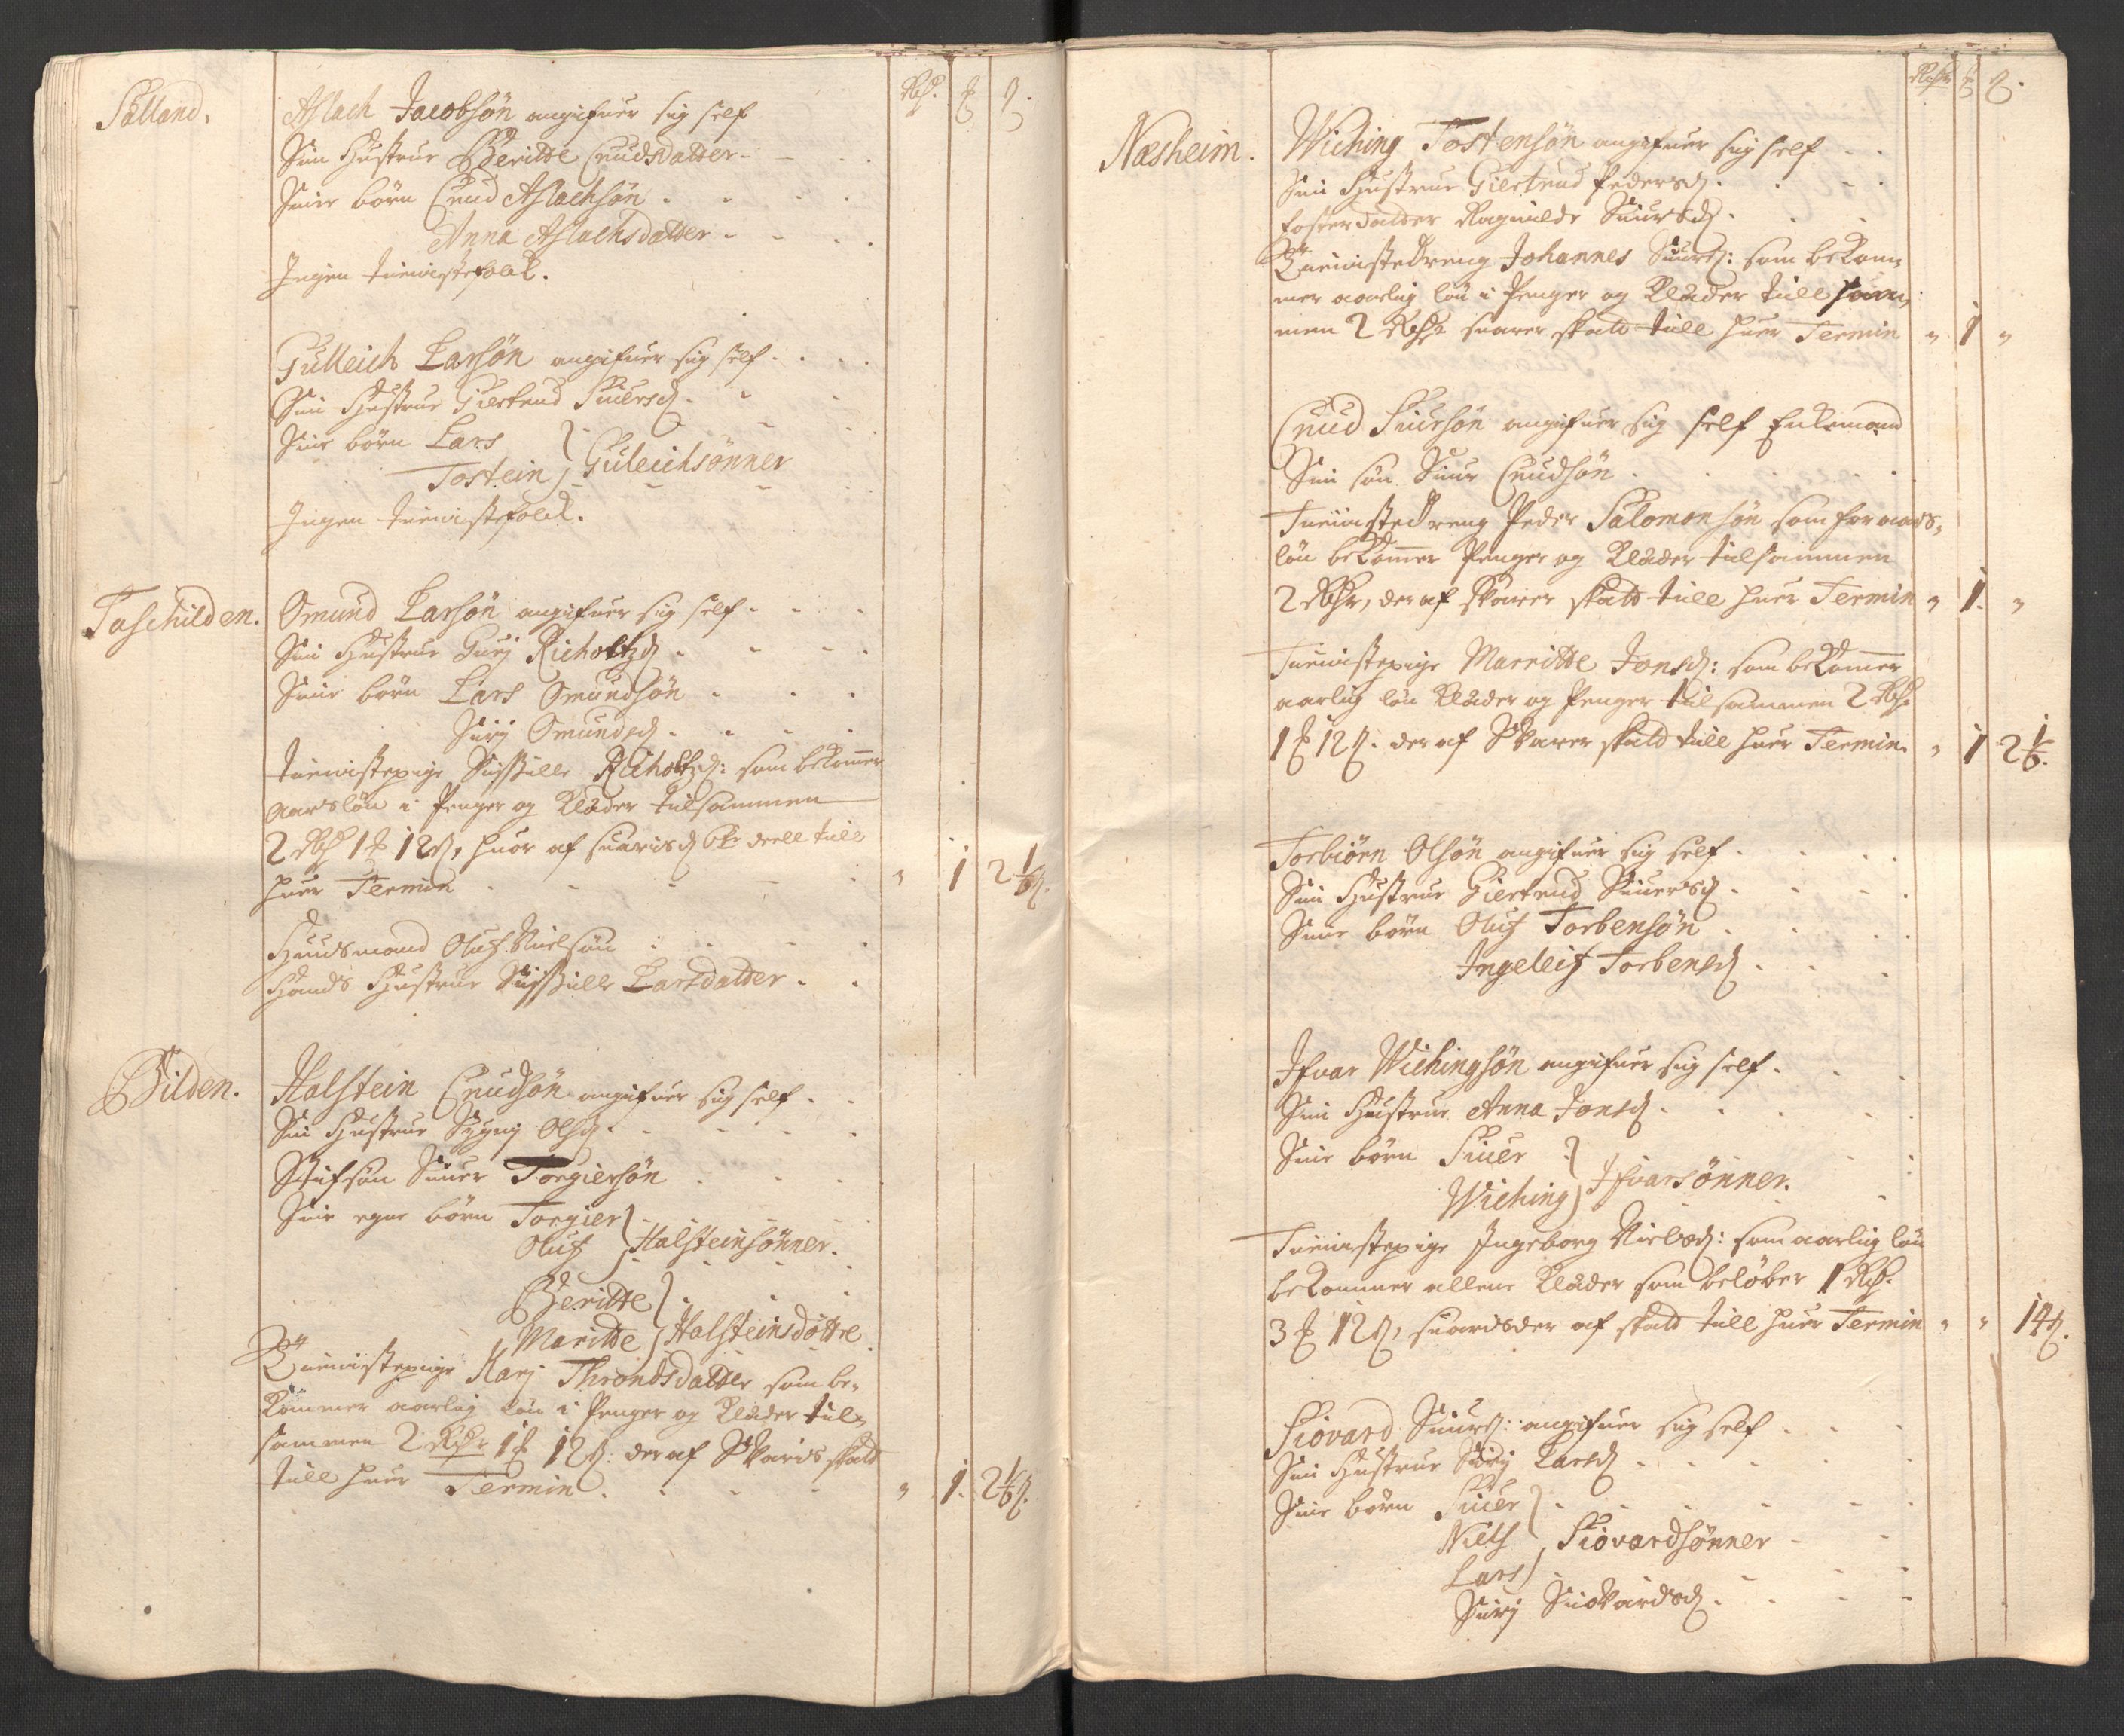 Rdr. ₰ ß.
Sælland. Aslach Jacobsøn angifuer sig self
Sin Hustrue Beritte Cnudsdatter
Sine børn Cnud Aslachsøn
Anna Aslachsdatter
Ingen tienistefolck.
Gulleich Larsøn angifuer sig self
Sin Hustrue Giertrud Siuersd
Sine børn Lars
Tostein } Guleichsønner
Ingen tienistefolck.
Taschilden. Omund Larsøn angifuer sig self
Sin Hustrue Gurj Richoltzd
Sine børn Lars Omundsøn
Surj Omundsd
tienistepige Sissille Richoltzd: som bekommer
aarsløn i Penger og Klæder tilsammen
2 Rdr 1 ₰ 12 ß, huor af suaris 6te deell till
huer Termin " 1 2 1/6 ß.
Huusmand Oluf Nielsøn
Hands Hustrue Sissille Larsdatter
Bilden. Halstein Cnudsøn angifuer sig self
Sin Hustrue Sygnj Olsd
Stifsøn Siuer Torgiersøn
Sine egne børn Torgier
Oluf } Halsteinsønner.
Beritte
Maritte } Halsteinsdøttre
Tienistepige Karj Throndsdatter som be-
kommer aarlig løn i Penger og Klæder til-
sammen 2 Rdr 1 ₰ 12 ß: der af Svaris skatt
till huer Termin " 1. 2 1/6 ß.
Rdr ₰ ß.
Næsheim. Wiching Tostensøn angifuer sig self
Sin Hustrue Giertrud Pedersd
fosterdatter Ragnilde Siursd
Tienistedreng Johannes Siurs: som bekom-
mer aarlig løn i Penger og Klæder till sam-
men 2 Rdr suarer skatt till huer Termin " 1 "
Cnud Siursøn angifuer sig self Enkemand
Sin søn Siur Cnudsøn
Tienistedreng Peder Salomonsøn som for aars-
løn bekommer Penger og Klæder tilsammen
2 Rdr, der af Svarer skatt till huer Termin " 1. "
Tienistepige Marritte Jonsd: som bekommer
aarlig løn Klæder og Penger tilsammen 2 Rdr
1 ₰ 12 ß. der af Svarer skatt till huer Termin " 1 2 1/6.
Torbiørn Olsøn angifuer sig self
Sin Hustrue Giertrud Siuersd
Sine børn Oluf Torbensøn
Ingeleif Torbensd
Ifvar Wichingsøn angifuer sig self
Sin Hustrue Anna Jonsd
Sine børn Siuer
Wiching } Ifvarsønner.
Tienistepige Ingeborg Nielsd: som aarlig løn
bekommer allene Klæder som beløber 1 Rdr
3 ₰ 12 ß, suaris der af skatt till huer Termin " " 14 ß.
Siovard Siurs: angifuer sig self
Sin Hustrue Surj Larsd
Sine børn Siuer
Niels } Siovardsønner
Lars
Surj Siovardsd